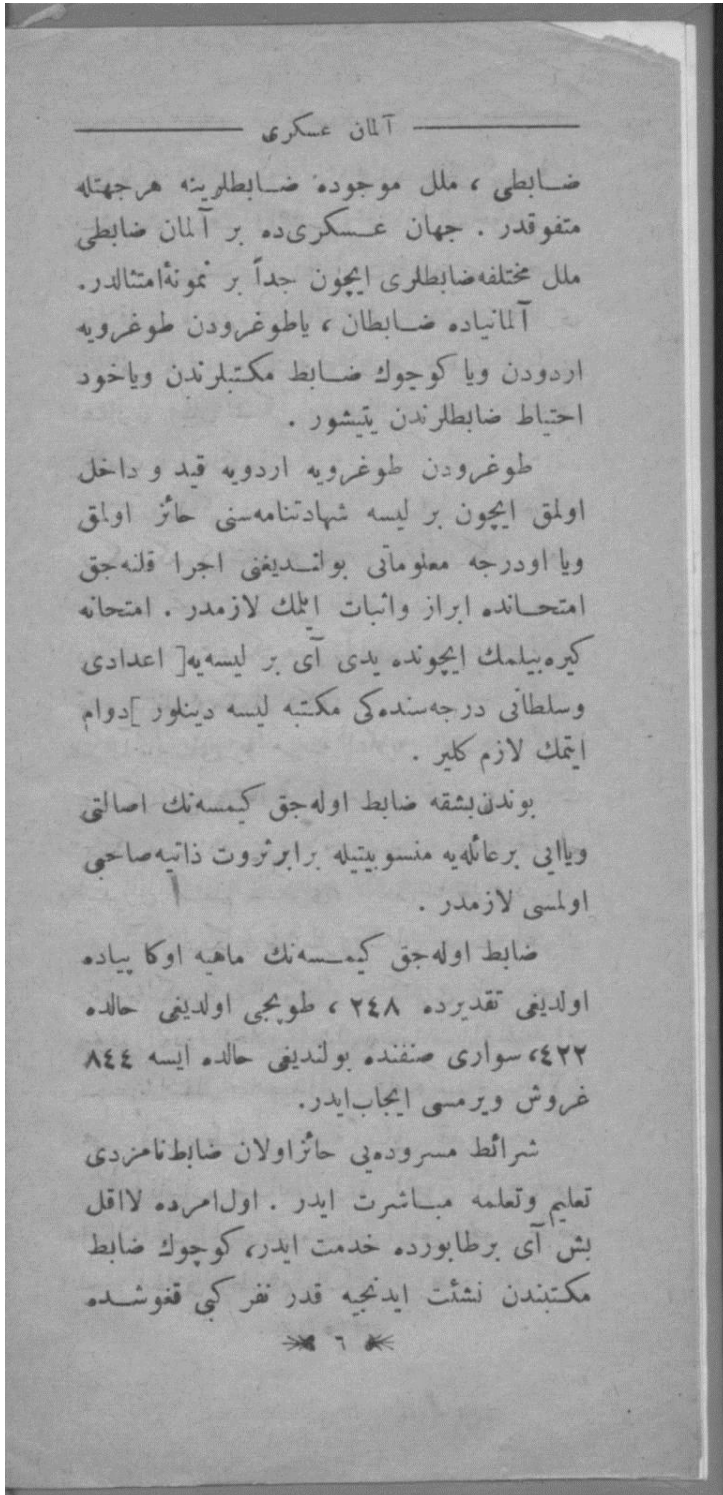 آلمان عسكرى
ضـابطى ، ملل موجودهٔ ضـابطلرينه هرجهتله
متفوقدر . جهان عـسكرى‌ده بر آلمان ضابطى
ملل مختلفه‌ضابطلرى ايچون جداً بر نمونهٔ‌امتثالدر.
آلمانياده ضـابطان ، ياطوغرودن طوغرويه
اردودن ويا كوچوك ضـابط مكتبلرندن وياخود
احتياط ضابطلرندن يتيشور .
طوغرودن طوغرويه اردويه قيد و داخل
اولمق ايچون بر ليسه شهادتنامه‌سنى حائز اولمق
ويا اودرجه معلوماتى بولنـديغنى اجرا قلنه‌جق
امتحـانده ابراز واثبات ايتمك لازمدر . امتحانه
كيره‌بيلمك ايچونده يدى آى بر ليسه‌يه[ اعدادى
وسلطانى درجه‌سنده‌كى مكتبه ليسه دينلور ]دوام
ايتمك لازم كلير .
بوندن‌بشقه ضابط اوله‌جق كيمسه‌نك اصالتى
وياايى برعائله‌يه منسوبيتيله برابرثروت ذاتيه‌صاحبى
اولمسى لازمدر .
ضابط اوله‌جق كيمـسه‌نك ماهيه اوكا پياده
اولديغى تقديرده ٢٤٨ ، طوپجى اولديغى حالده
٤٢٢، سوارى صنفنده بولنديغى حالده ايسه ٨٤٤
غروش ويرمسى ايجاب‌ايدر.
شرائط مسروده‌يى حائزاولان ضابط‌نامزدى
تعليم وتعلمه مبـاشرت ايدر . اول‌امرده لااقل
بش آى برطابورده خدمت ايدر، كوچوك ضابط
مكتبندن نشئت ايدنجيه قدر نفر كبى قغوشـده
٦